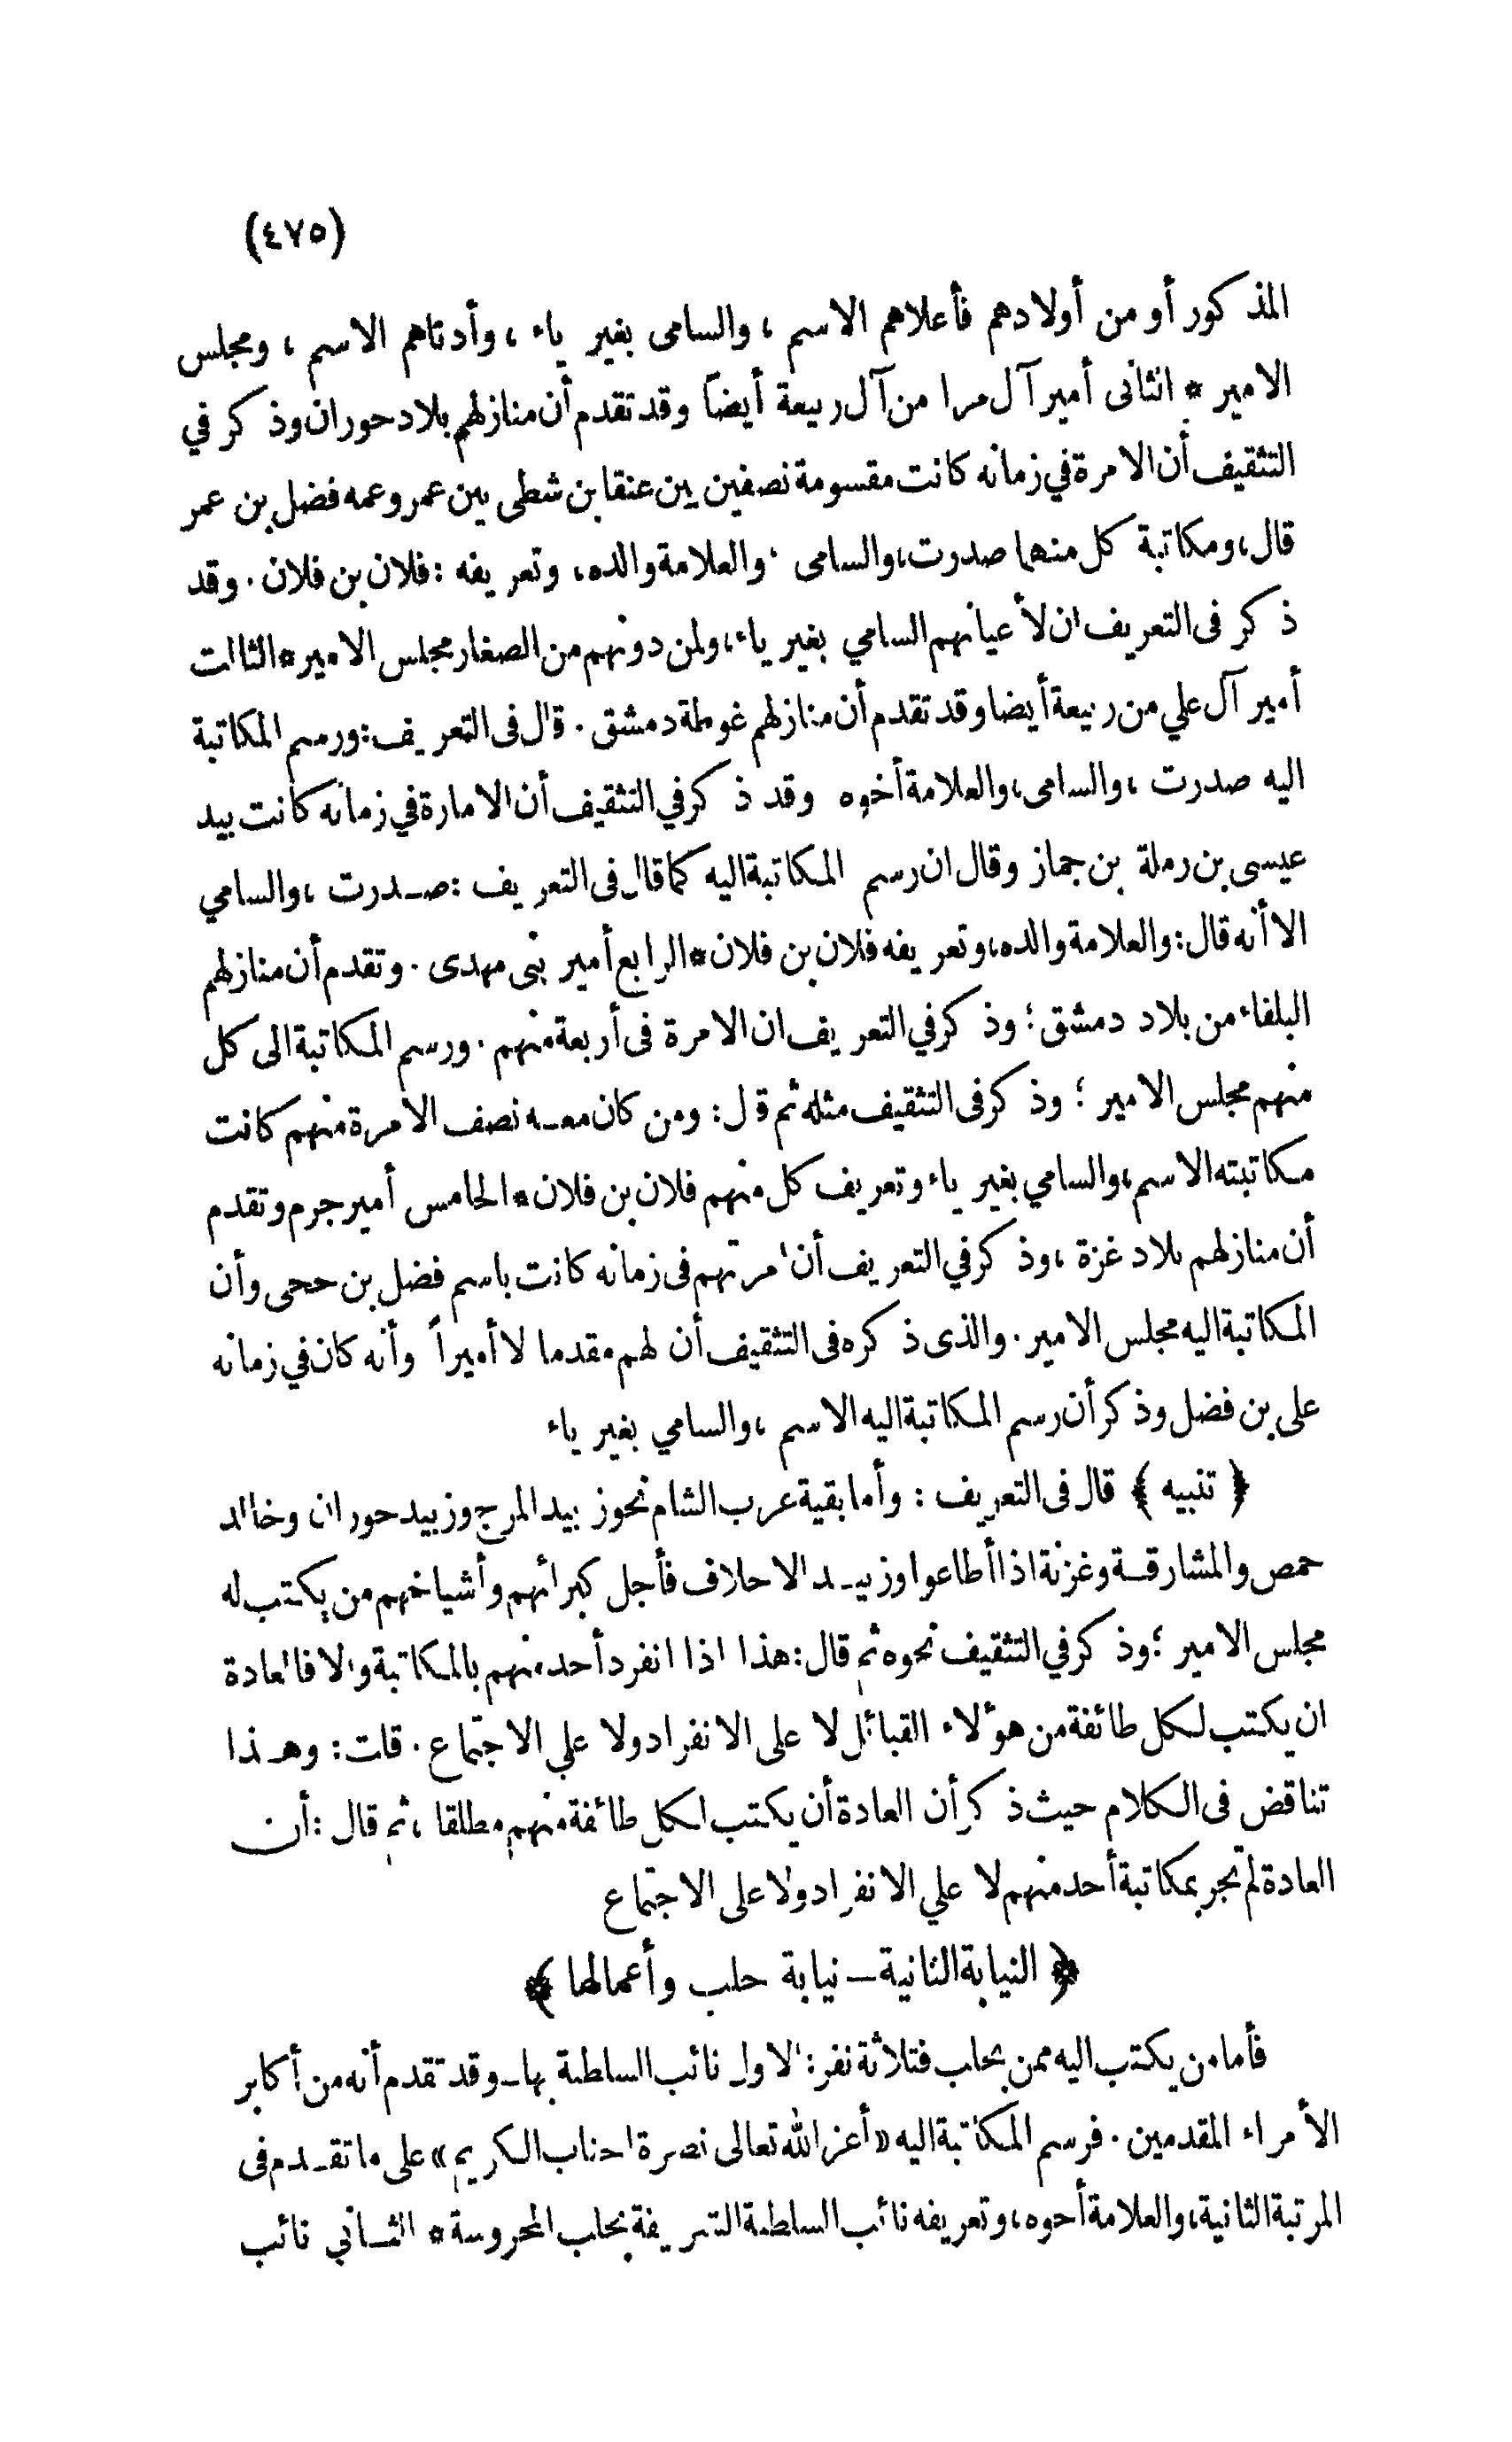 (٤٧٥)
المذكور أو من أولادهم فأعلاهم الاسم ، والسامى بغير ياء ، وأدناهم الاسم ، ومجلس
الامير * الثانى أمير آل مرا من آل ربيعة أيضاً وقد تقدم أن منازلهم بلاد حوران وذكر في
التثقيف أن الامرة في زمانه كانت مقسومة نصفين بين عنقا بن شطى بين عمر وعمه فضل بن عمر
قال، ومكاتبة كل منهما صدرت، والسامى ، والعلامة والده، وتعريفه : فلان بن فلان . وقد
ذكر فى التعريف ان لأعيانهم السامي بغير ياء، ولمن دونهم من الصغار مجلس الامير * الثالث
أمير آل علي من ربيعة أيضا وقد تقدم أن منازلهم غوطة دمشق . قال فى التعريف : ورسم المكاتبة
اليه صدرت ، والسامى، والعلامة أخوه وقد ذكر في التثقيف أن الامارة في زمانه كانت بيد
عيسى بن رملة بن جماز وقال ان رسم المكاتبة اليه كما قال فى التعريف : صدرت ، والسامي
الا أنه قال : والعلامة والده، وتعريفه فلان بن فلان * الرابع أمير بنى مهدى . وتقدم أن منازلهم
البلقاء من بلاد دمشق ؛ وذكر في التعريف ان الامرة فى أربعة منهم . ورسم المكاتبة الى كل
منهم مجلس الامير ؛ وذكر فى التثقيف مثله ثم قال : ومن كان معه نصف الامرة منهم كانت
مكاتبته الاسم، والسامي بغير ياء وتعريف كل منهم فلان بن فلان * الخامس أمير جرم وتقدم
أن منازلهم بلاد غزة ، وذكر في التعريف أن امرتهم فى زمانه كانت باسم فضل بن حجى وأن
المكاتبة اليه مجلس الامير . والذى ذكره فى التثقيف أن لهم مقدما لا أميراً وأنه كان في زمانه
على بن فضل وذكر أن رسم المكاتبة اليه الاسم ، والسامي بغير ياء
﴿ تنبيه ﴾ قال فى التعريف : وأما بقية عرب الشام نحو زبيد المرج وزبيد حوران وخالد
حمص والمشارقة وغزنة اذا أطاعوا وزبيد الاحلاف فأجل كبرائهم وأشياخهم من يكتب له
مجلس الامير ؛ وذكر في التثقيف نحوه ثم قال : هذا اذا انفرد أحد منهم بالمكاتبة والا فالعادة
ان يكتب لكل طائفة من هؤلاء القبائل لا على الانفراد ولا علي الاجتماع . قلت : وهذا
تناقض فى الكلام حيث ذكر أن العادة أن يكتب لكل طائفة منهم مطلقا ، ثم قال : أن
العادة لم تجر بمكاتبة أحد منهم لا علي الانفراد ولا على الاجتماع
﴿ النيابة الثانية – نيابة حلب وأعمالها ﴾
فأما من يكتب اليه ممن بحلب فثلاثة نفر : الاول نائب السلطنة بها – وقد تقدم أنه من أكابر
الأمراء المقدمين . فرسم المكاتبة اليه «أعز الله تعالى نصرة الجناب الكريم» على ما تقدم فى
المرتبة الثانية، والعلامة أخوه، وتعريفه نائب السلطنة الشريفة بحلب المحروسة * الثاني نائب